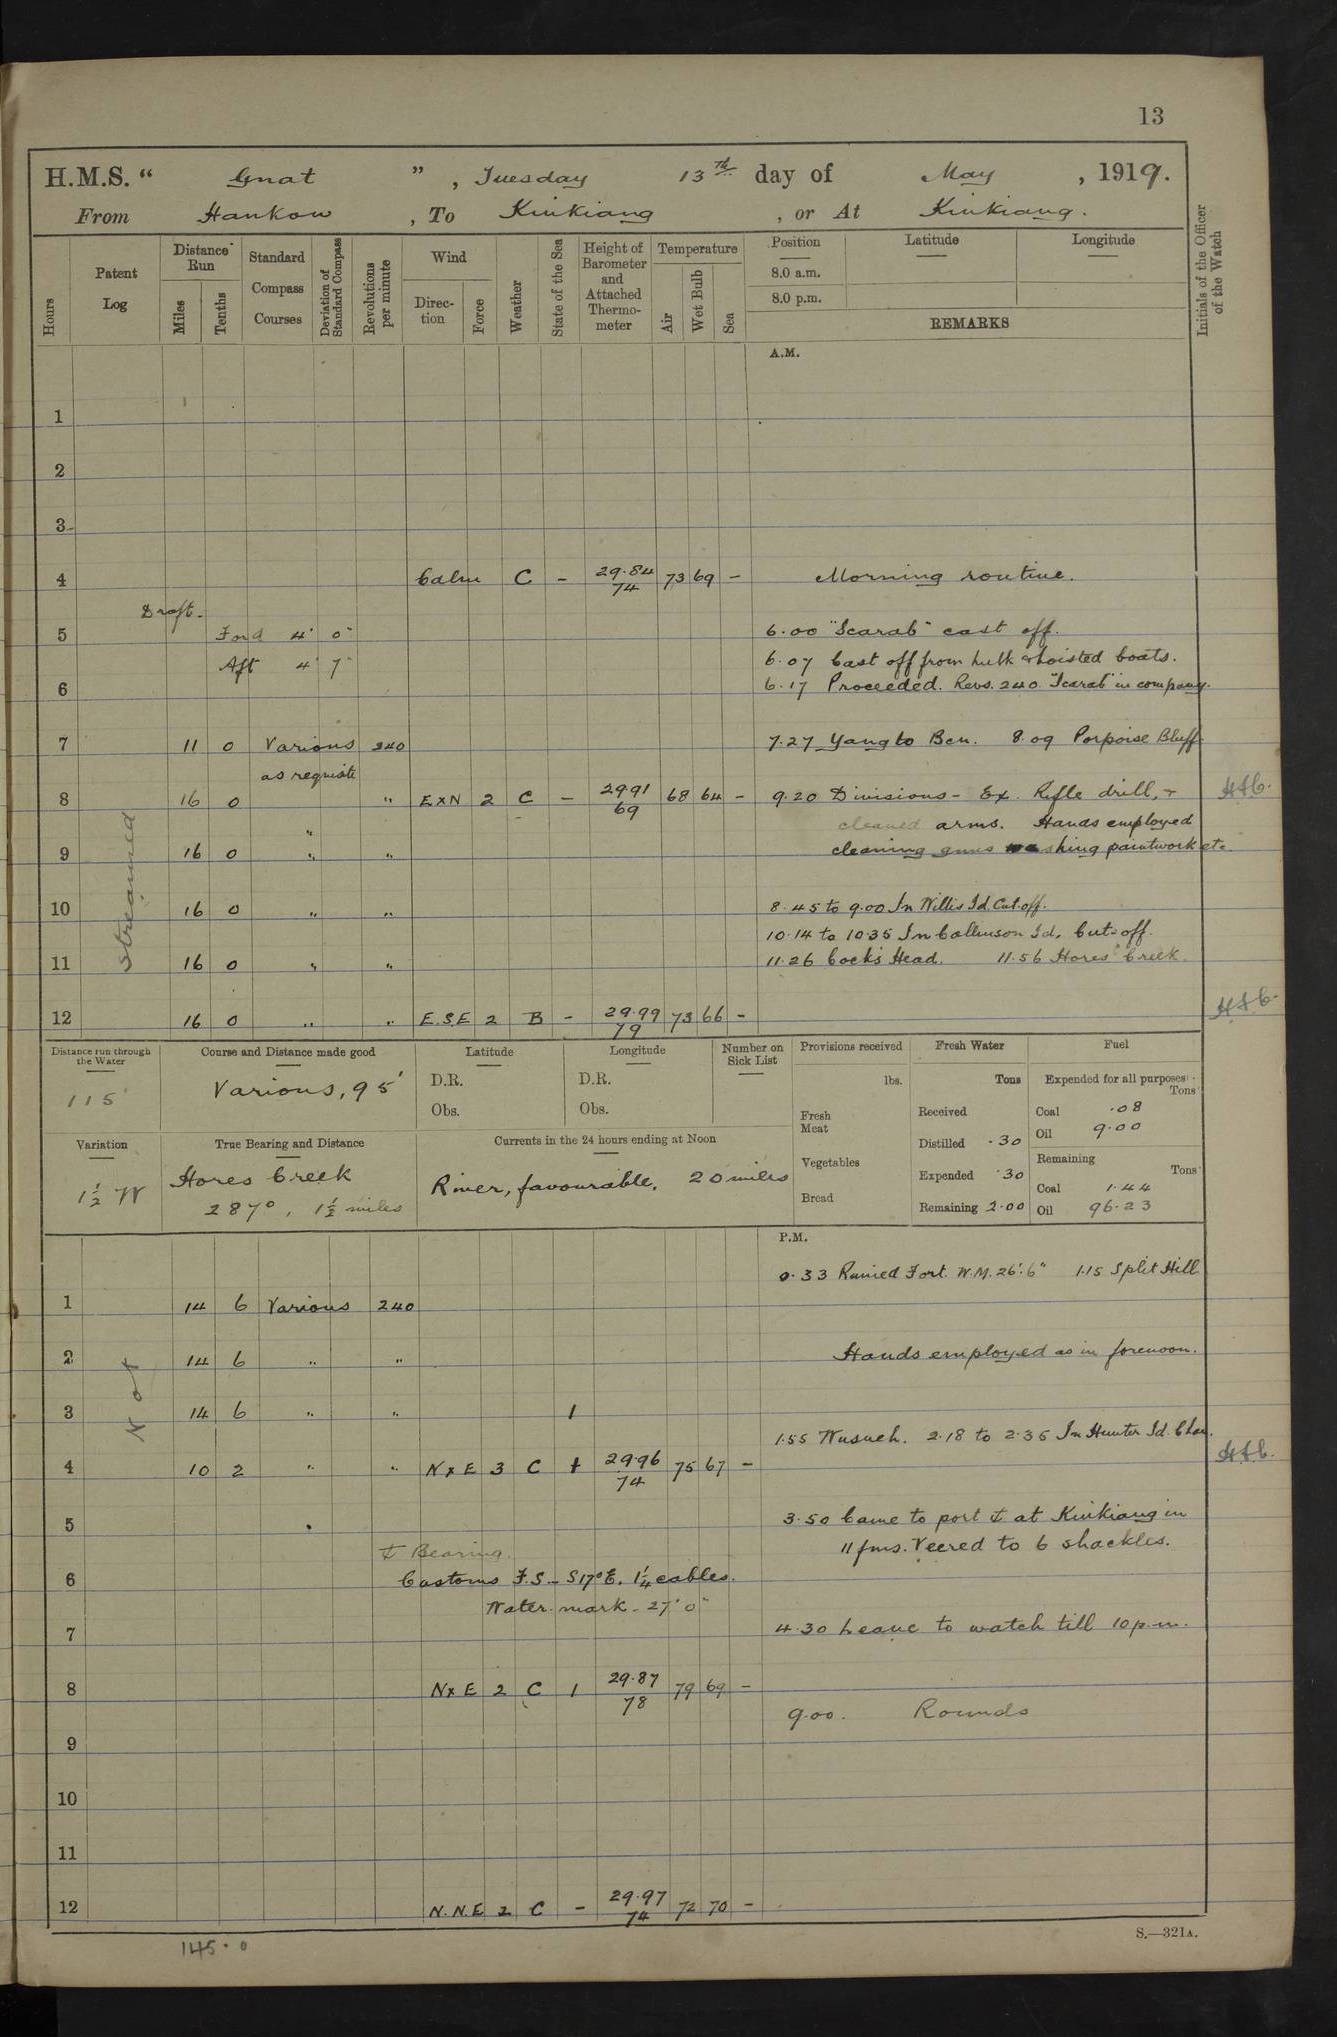 13
H.M.S. “ Gnat ” , Tuesday 13th day of May , 1919.
From Hankow , To Kiukiang , or At Kiukiang.
Hours
Patent Log
Distance Run
Miles
Tenths
Standard Compass Courses
Deviation of Standard Compass
Revolutions per minute
Wind
Direction
Force
Weather
State of the Sea
Height of Barometer and Attached Thermometer
Temperature
Air
Wet Bulb
Sea
Position
8.0 a.m.
8.0 p.m.
Latitude
Longitude
REMARKS
Initials of the Officer of the Watch
A.M.
1
2
3
4 Calm C - 29.84 74 73 69 - Morning routine.
Draft.
5 Ford 4' 0" 6.00 "Scarab" cast off.
Aft 4' 7" 6.07 Cast off from hulk & hoisted boats.
6 6.17 Proceeded. Revs. 240. "Scarab" in company.
7 11 0 Various 240 7.27 Yangto Bcn. 8.09 Porpoise Bluff.
as requisite
8 16 0 " ExN 2 C - 29.91 69 68 64 - 9.20 Divisions - Ex. Rifle drill, &
" cleaned arms. Hands employed
9 16 0 " " cleaning guns washing paintwork etc
10 16 0 " " 8.45 to 9.00 In Willis Id. Cut-off.
10.14 to 10.35 In Collinson Id. Cut-off.
11 16 0 " " 11.26 Cock's Head. 11.56 Hores Creek.
12 16 0 " " E.S.E 2 B - 29.99 79 73 66 -
Streamed
Distance run through the Water
115'
Course and Distance made good
Various, 95'
Latitude
D.R.
Obs.
Longitude
D.R.
Obs.
Number on Sick List
Provisions received
lbs.
Fresh Meat
Vegetables
Bread
Fresh Water
Tons
Received
Distilled .30
Expended .30
Remaining 2.00
Fuel
Expended for all purposes
Tons
Coal .08
Oil 9.00
Remaining
Tons
Coal 1.44
Oil 96.23
Variation
1½ W
True Bearing and Distance
Hores Creek
287°, 1½ miles
Currents in the 24 hours ending at Noon
River, favourable, 20 miles
P.M.
0.33 Ruined Fort. W.M. 26'.6" 1.15 Split Hill
1 14 6 Various 240
2 14 6 " " Hands employed as in forenoon.
3 14 6 " " 1
1.55 Wusueh. 2.18 to 2.35 In Hunter Id. Chan.
4 10 2 " " NxE 3 C 1 29.96 74 75 67 -
Not
5 3.50 Came to port ⚓ at Kiukiang in
⚓ Bearing. 11 fms. Veered to 6 shackles.
6 Customs F.S. - S17°E. 1¼ cables.
Water mark - 27' 0"
7 4.30 Leave to watch till 10 p.m.
8 NxE 2 C 1 29.87 78 79 69 -
9.00. Rounds
9
10
11
12 N.N.E 2 C - 29.97 74 72 70 -
145.0
S.—321A.